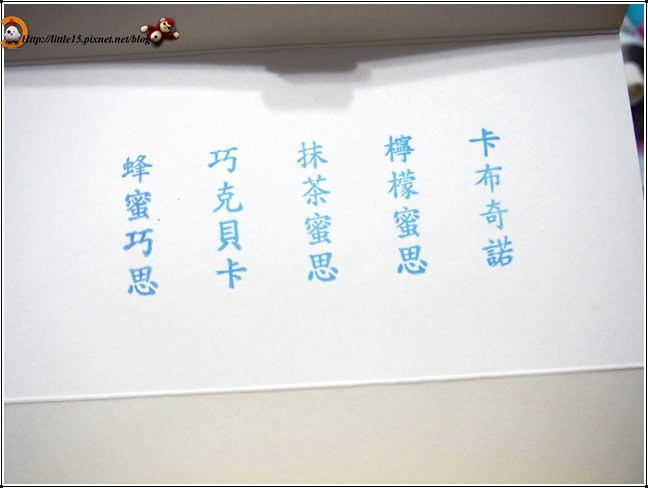 Http://little15.pixnet.net/blog
卡布奇諾
檸檬蜜思
抹茶蜜思
巧克貝卡
蜂蜜巧思